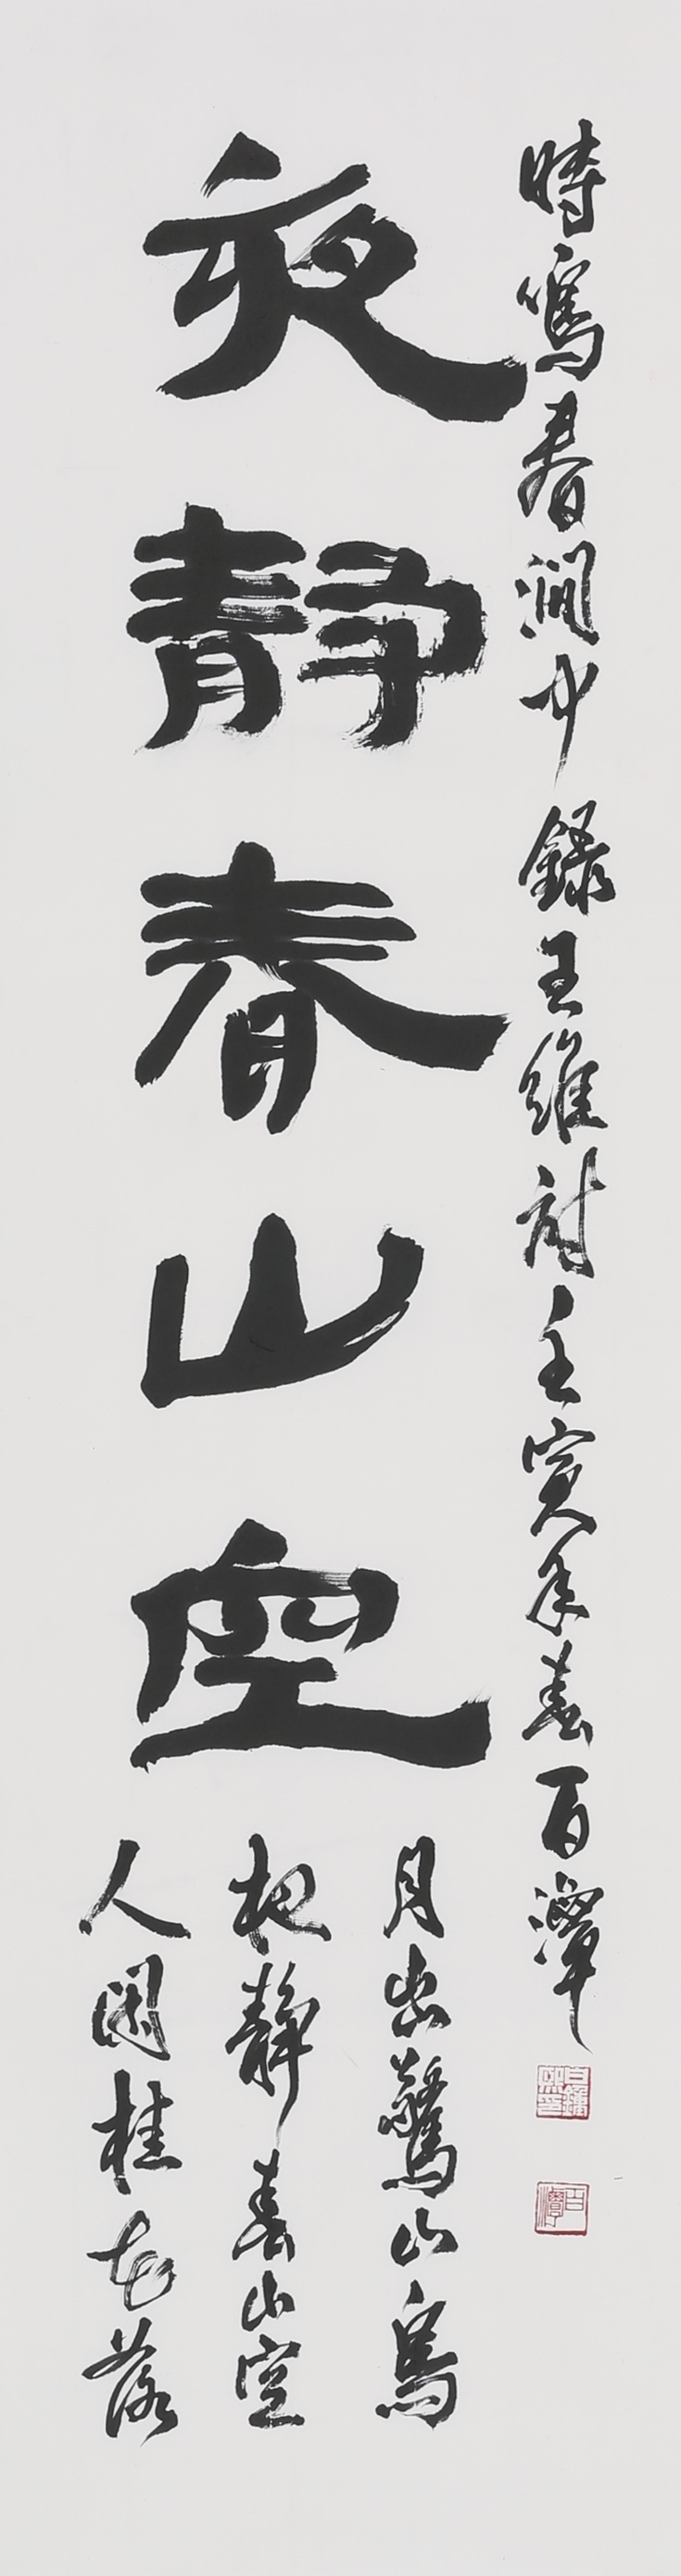 夜靜春山空
人閑桂花落
夜靜春山空
月出驚山鳥
時鳴春澗中 錄王維詩 壬寅年春 百潭
百潭